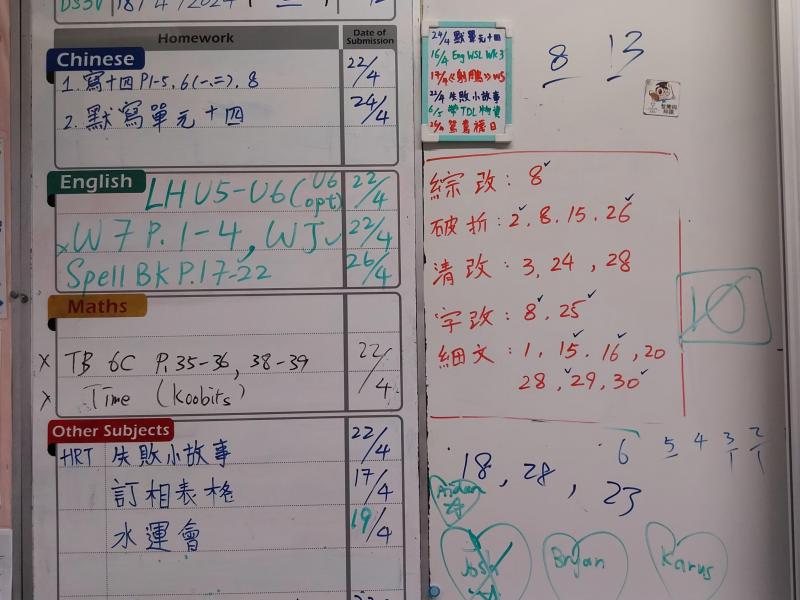 18/4/2024
Homework
Date of Submission
Chinese
1. 寫十四 P1-5, 6(一、二), 8 22/4
2. 默寫單元十四 24/4
English
LH U5-U6 (U6 opt) 22/4
x W 7 P. 1-4, WJ 22/4
Spell BK P.17-22 26/4
Maths
x TB 6C P. 35-36, 38-39 22/4
x Time (Koobits)
Other Subjects
HRT 失敗小故事 22/4
訂相表格 17/4
水運會 19/4
24/4 默單元十四
16/4 Eng WSL Wk 3
17/4 WS
22/4 失敗小故事
6/5 帶TDL物資
8 13
綜改: 8
破折: 2, 8. 15. 26
清改: 3, 24, 28
字改: 8, 25
細文: 1, 15. 16, 20
28, 29, 30
10
6 5 4 3 2
1 1
18, 28, 23
Aidan
Josh
Bryan
Karus